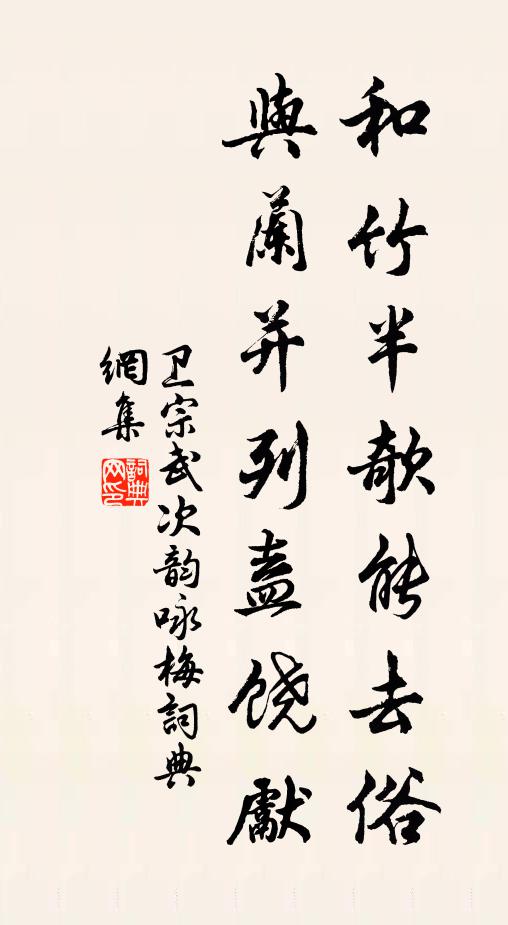 和竹半欹能去俗
與蘭并列盍饶獻
卫宗武次韵咏梅詞典
網集
詞典
网印